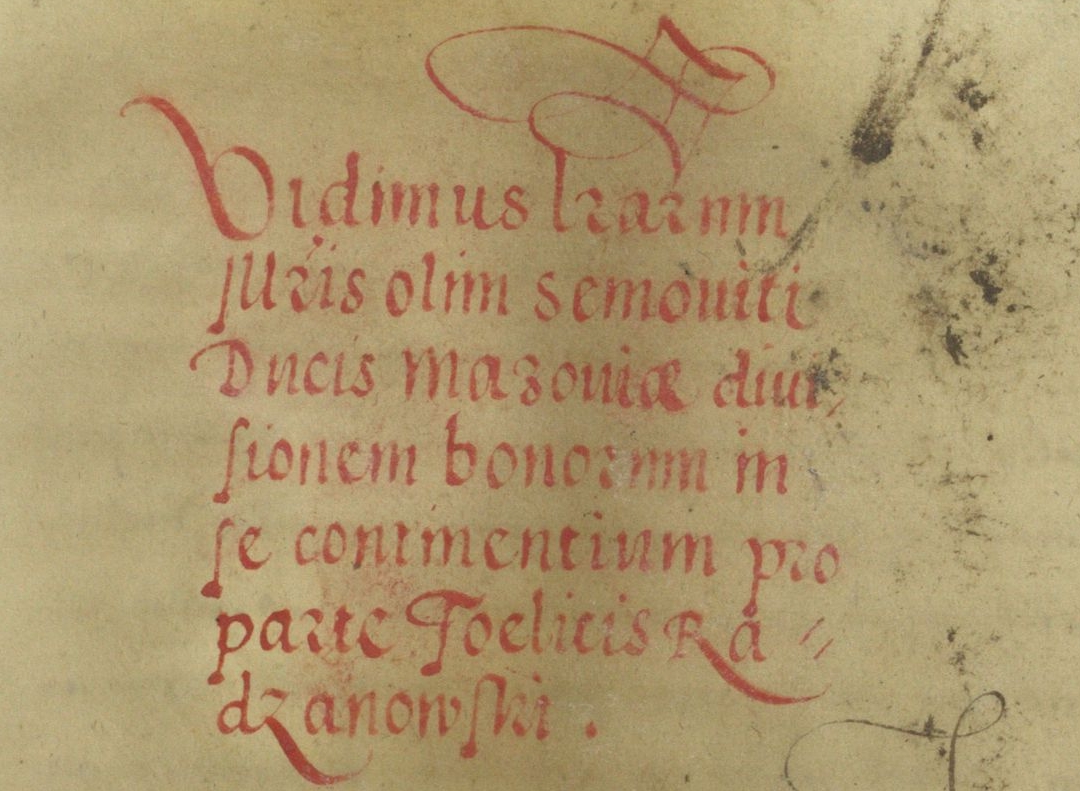 Vidimus lrarum
Iuris olim Semouiti
Ducis Mazouiæ diui,
sionem bonorum in
se continentium pro
parte Foelicis Ra //
dzanowski .